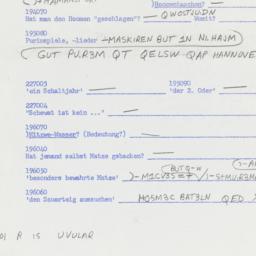 194070 )Hosentaschen?
Hat man den Hooman "geschlagen"? — QWOSTJUDN Womit?
195080
Purimspiele, -lieder —MASKIREN BUT 1N NLHAJM
GUT PUR3M QT QELSW QAP HANNOVE
227003 193090
'ein Schaltjahr' — 'der 2. Oder' —
227004
"Schewat ist kein ..." —
196070
(Bedeutung?) —
196040
Hat jemand selbst Matze gebacken? —
196050 BUTQ-W
'besonders bewahrte Matze'
196060
'den Sauerteig aussuchen' HOSM3C BAT3LN QED
R IS UVULAR